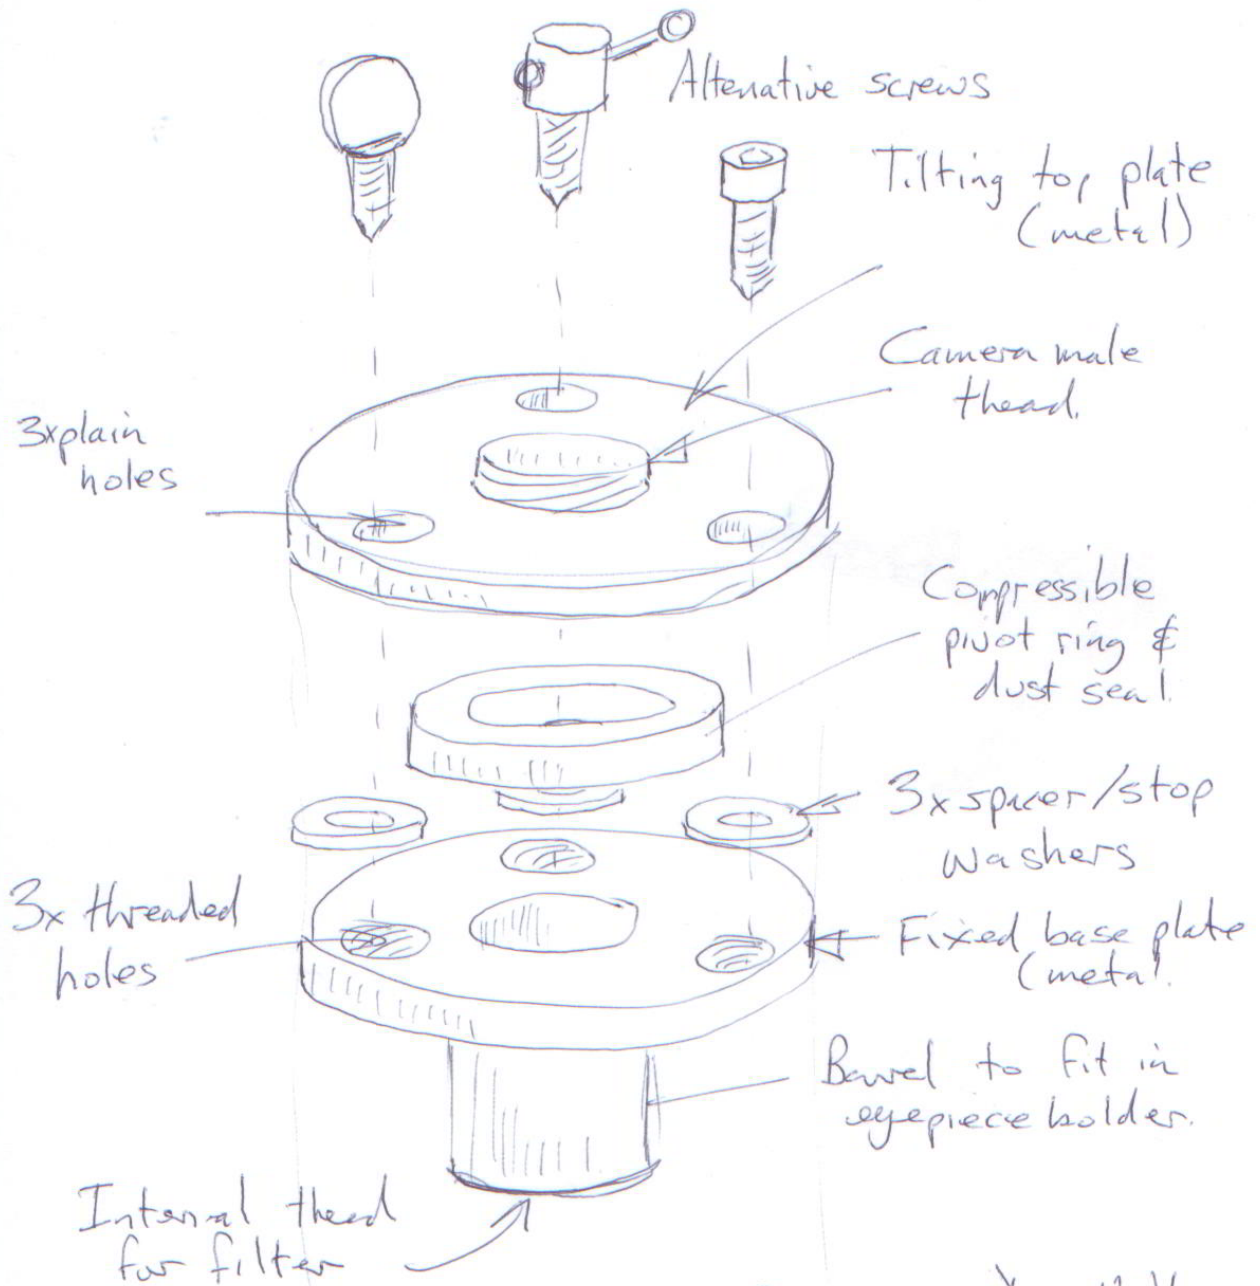 Alternative screws
Tilting top plate
(metal)
Camera male
thead.
3xplain
holes
Compressible
pivot ring &
dust seal.
3x spacer/stop
washers
3x threaded
holes
Fixed base plate
(metal.
Barrel to fit in
eyepiece holder.
Internal thead
for filter